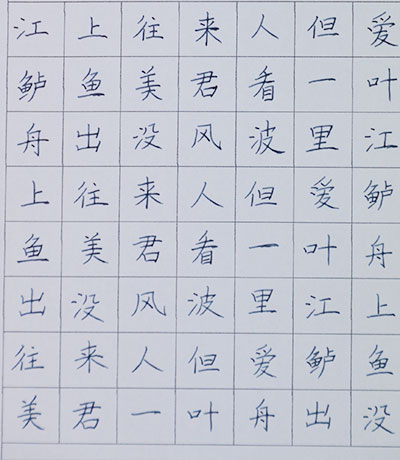 江上往来人但爱
鲈鱼美君看一叶
舟出没风波里江
上往来人但爱鲈
鱼美君看一叶舟
出没风波里江上
往来人但爱鲈鱼
美君一叶舟出没